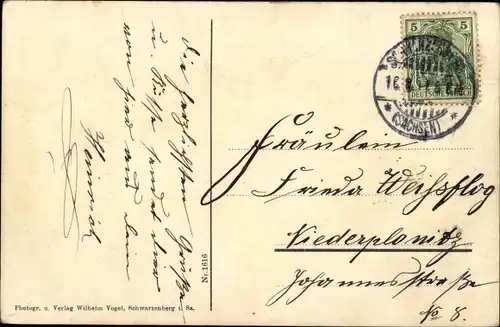 Die herzlichsten Grüße
u. Küsse sendet Dir
von hier aus Dein
Heinrich
Nr. 1616
Photogr. u. Verlag Wilhelm Vogel, Schwarzenberg i. Sa.
5 5
DEUTSCHES REICH
16.8.
* (SACHSEN) *
Fräulein
Frieda Weißpflog
Niederplanitz
Johannesstraße
No 8.